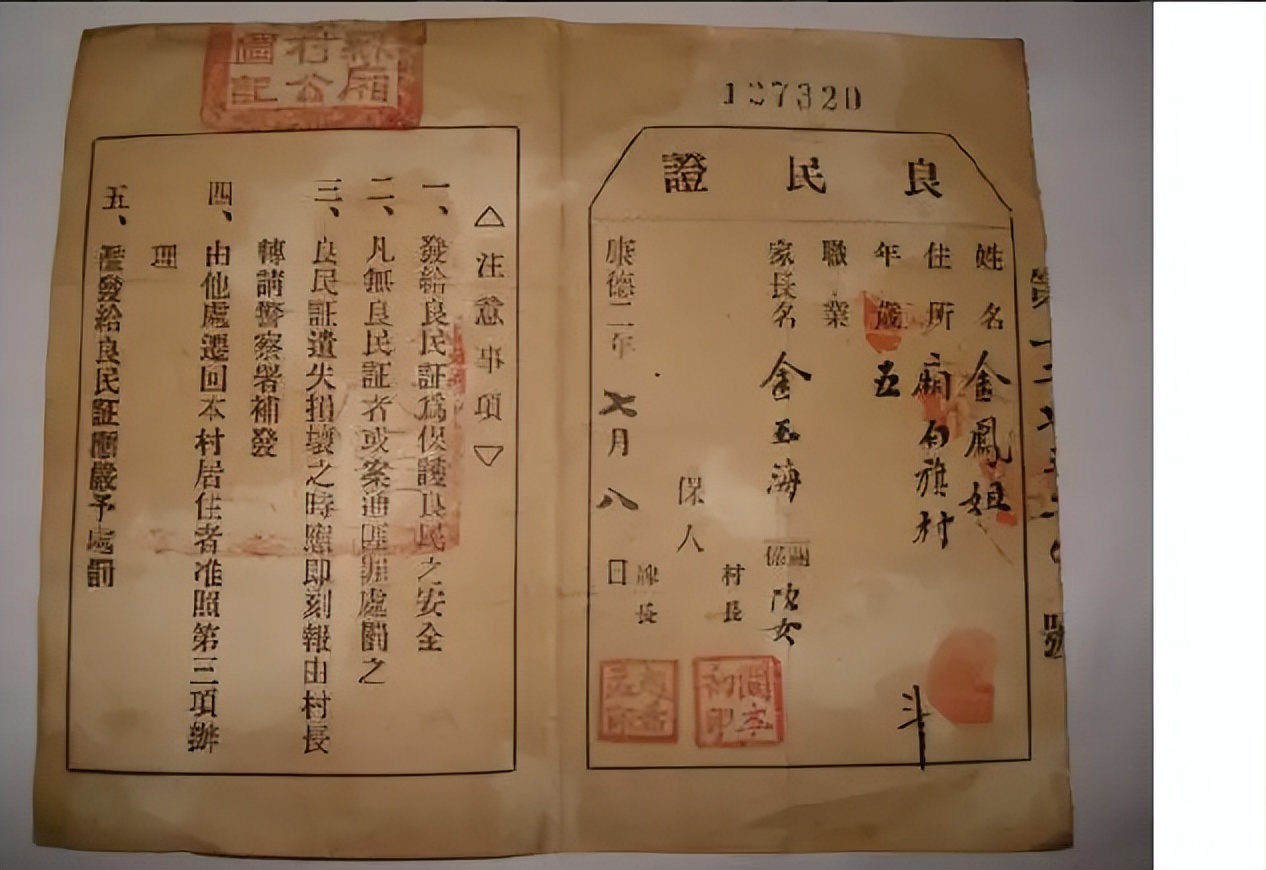 127320
良民證
姓名 金鳳姐
住所 廂白旗村
年歲 五
職業
家長名 金玉海 關係 次女
保人
村長
牌長
康德二年七月八日
斗
號
△注意事項▽
一、發給良民証爲保護良民之安全
二、凡無良民証者或案通匪辦處罰之
三、良民証遺失損壞之時應即刻報由村長
轉請警察署補發
四、由他處遷回本村居住者准照第三項辦
理
五、濫發給良民証應嚴予處罰